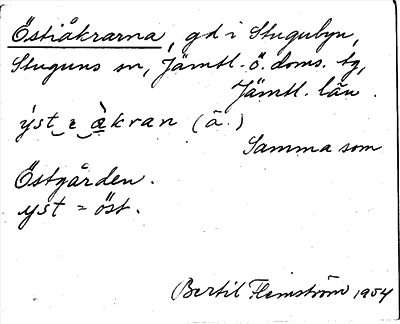 Östiåkrarna, gd i Stugubyn,
Stuguns sn, Jämtl. ö. doms. tg,
Jämtl. län.
ýst ɩ àkran (ā.)
Samma som
Östgården.
yst = öst.
Bertil Flemström 1954